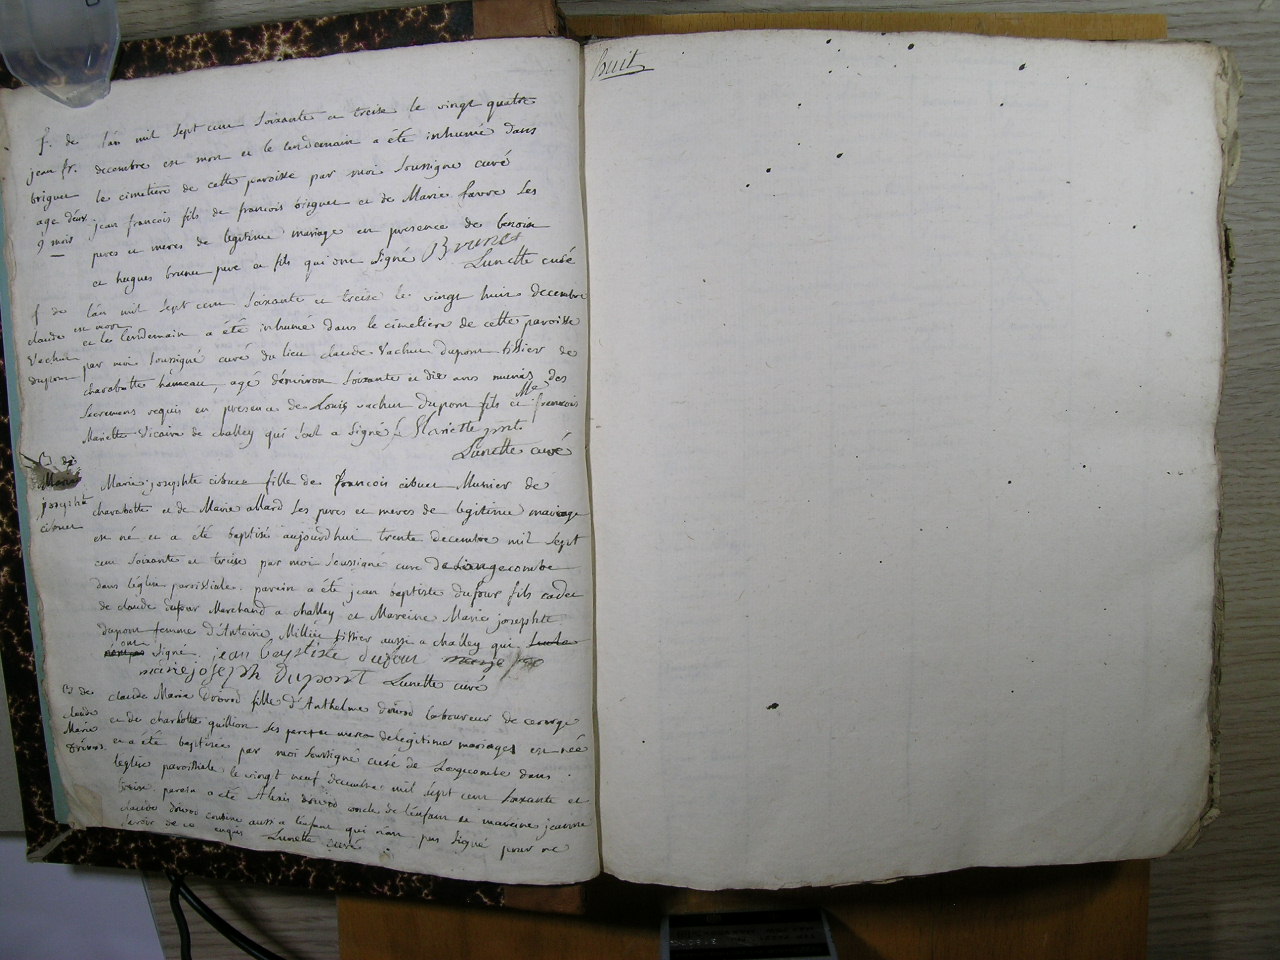 f. de
jean fr.
briguet
agé deux
9 mois
lán mil sept cent soixante et treise le vingt quatre
decembre est mort et le lendemain a été inhumé dans
le cimetiere de cette paroisse par moi soussigné curé
jean francois fils de francois briguet et de Marie favre ses
peres et meres de legitime mariage en presence de benoit
et hugues brunet pere et fils qui ont signé Brunet
Lunette curé
f de
claude
Vachut
dupont
lán mil sept cent soixante et treise le vingt huit decembre
est mort
et le lendemain a été inhumé dans le cimetiere de cette paroisse
par moi soussigné curé du lieu claude Vachut dupont tissier de
charabotte hameau, agé dénviron soixante et dix ans munis des
sacremens requis en presence de Louis vachut dupont fils et Mre francois
Mariette Vicaire de challey qui seul a signé Mariette prêt.
Lunette curé
B de
Marie
josephte
cibuet
Marie josephte cibuet fille de francois cibuet Munier de
charabotte et de Marie allard ses peres et meres de legitime mariage
est né et a été baptisé aujourdhui trente decembre mil sept
cent soixante et treise par moi soussigné curé de Longecombe
dans léglise paroissiale. parein a été jean baptiste dufour fils cadet
de claude dufour Marchand a challey et Mareine Marie josephte
dupont femme d'Antoine Milliet tissier aussi a challey qui
ont signé. jean baptiste dufour
marie joseph Dupont Lunette curé
B de
claude
Marie
claude Marie fille d'Anthelme laboureur de
et de charlotte guillion ses pere et mere de legitime mariages est née
et a été baptisee par moi soussigné curé de Longecombe dans
léglise paroissiale le vingt neuf decembre mil sept cent soixante et
treise. parein a été Alexis oncle de lénfant et mareine jeanne
claude cousine aussi a lénfant qui nónt pas signé pour ne
savoir de ce enquis Lunette curé
huit